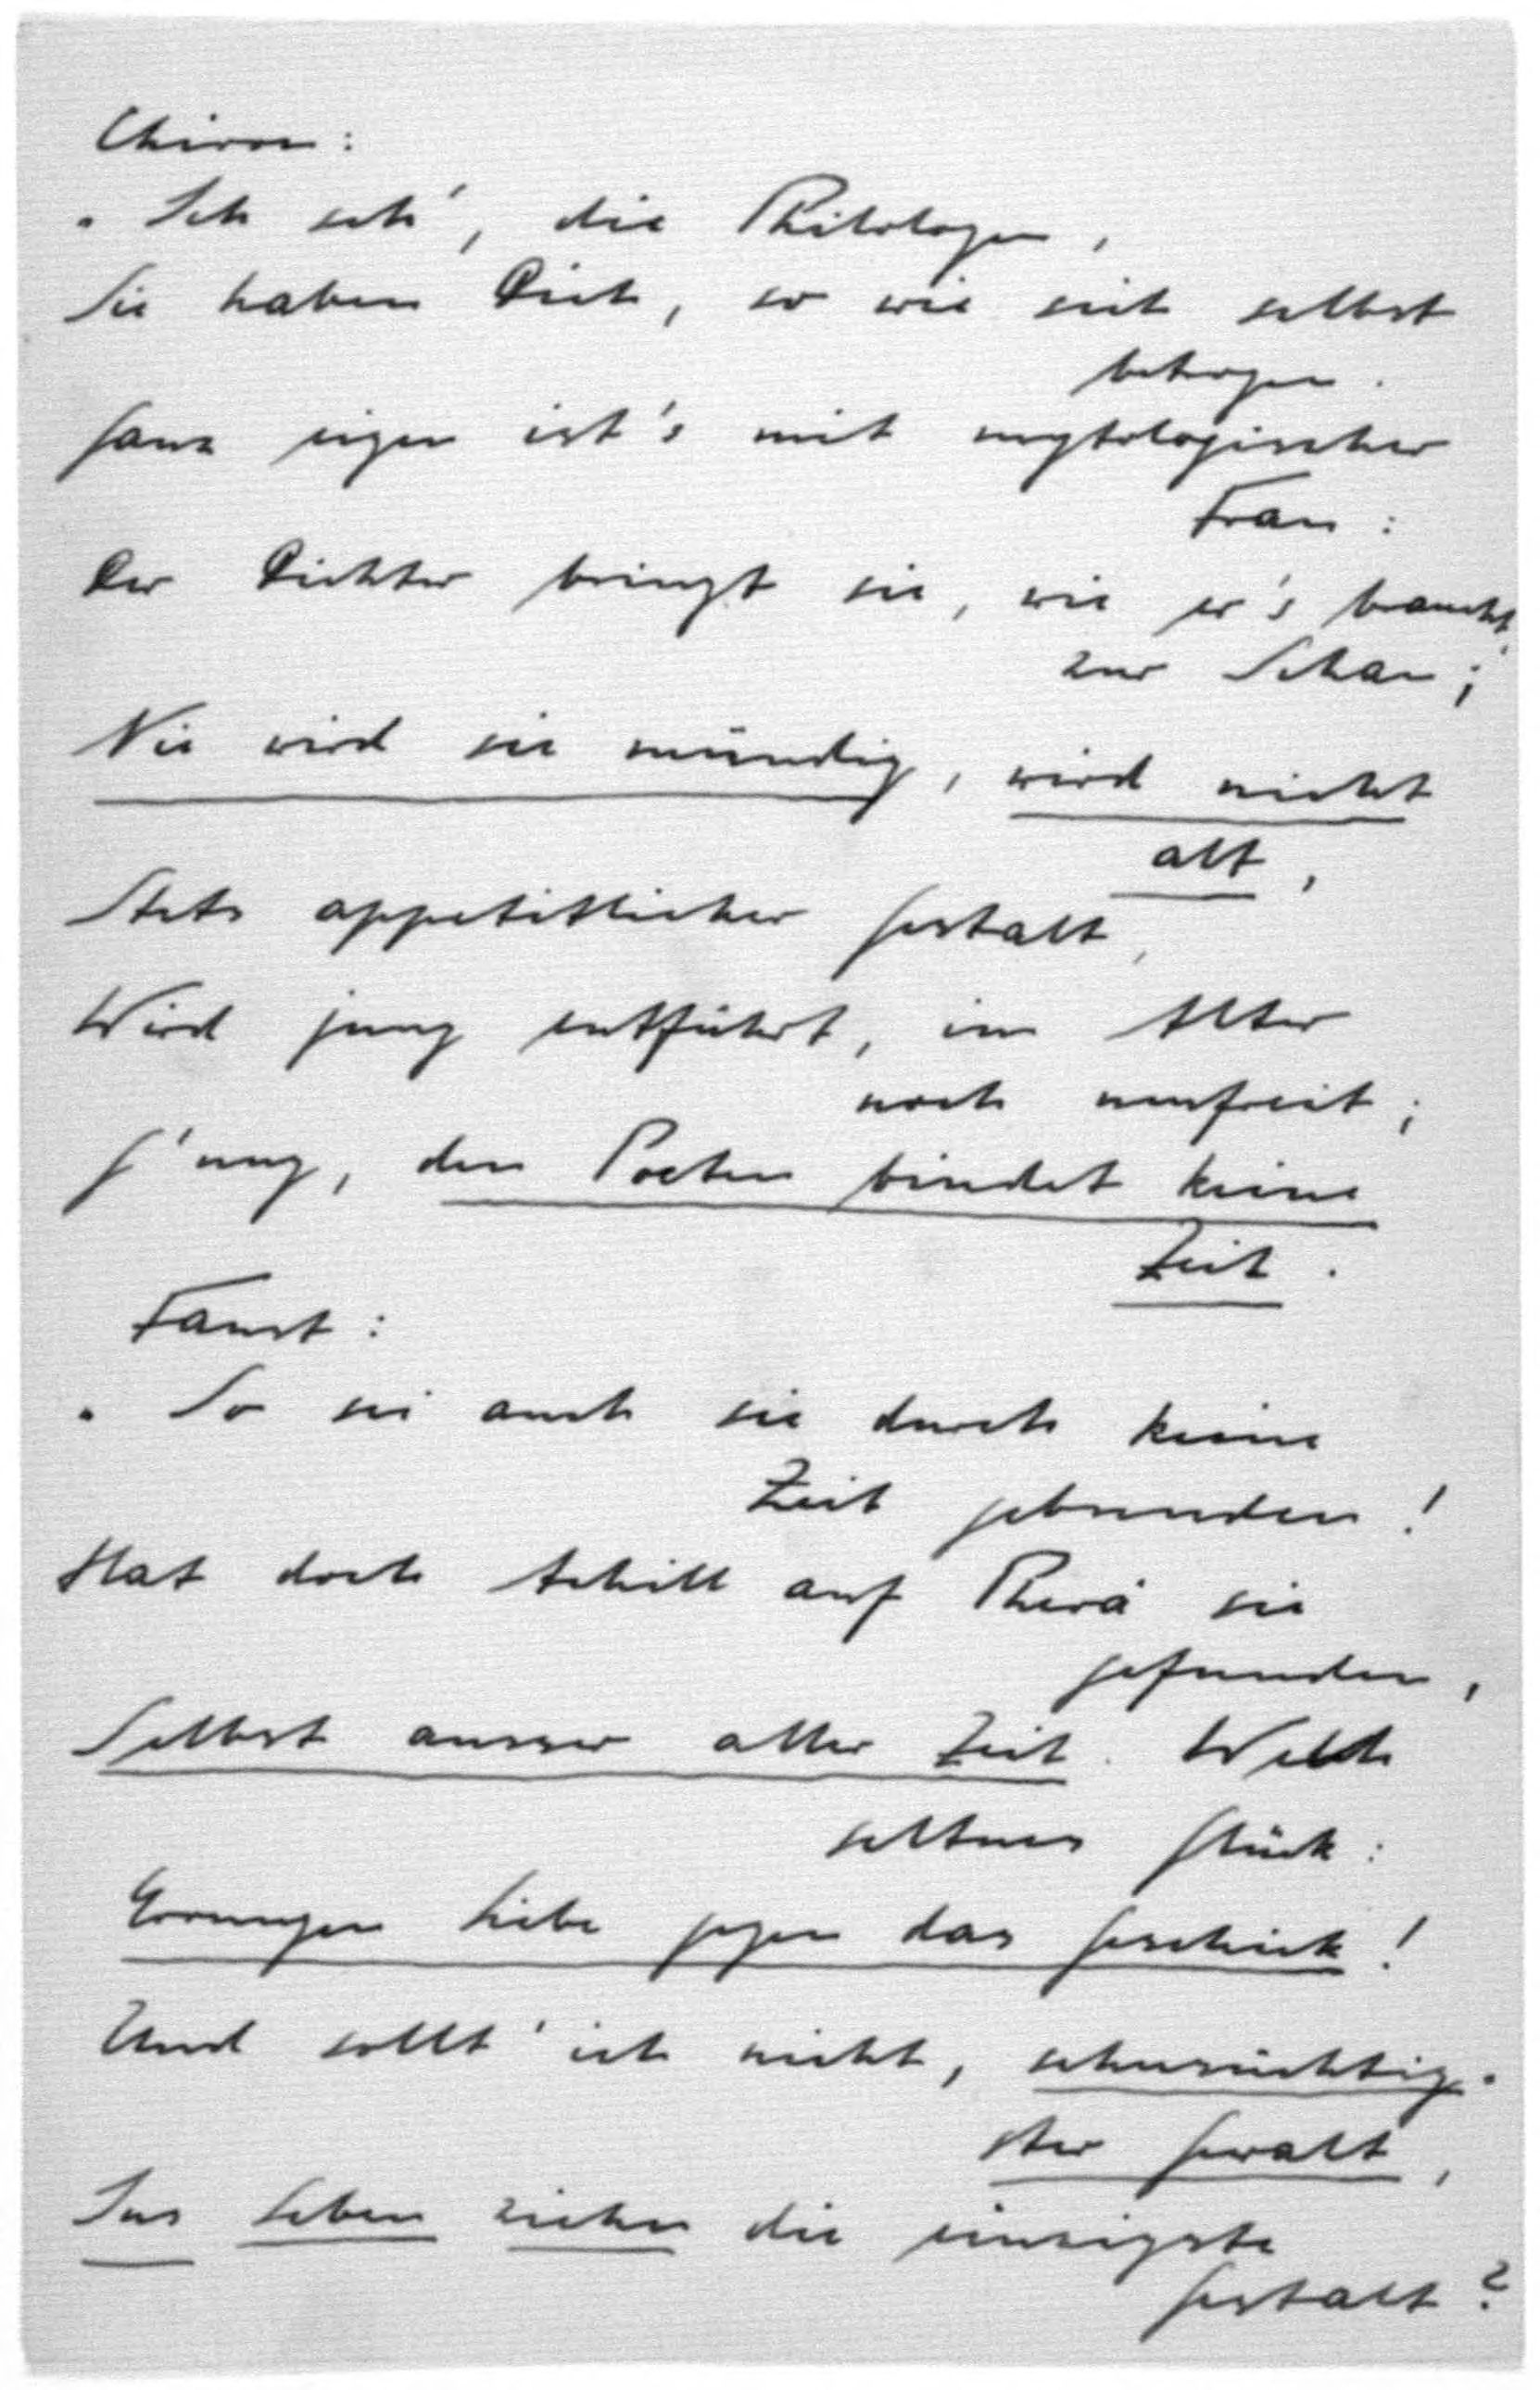 Chiron:
„ Ich seh', die Philologen,
Sie haben Dich, so wie sich selbst
betrogen.
Ganz eigen ist's mit mytologischer
Frau:
Der Dichter bringt sie, wie er's braucht,
zur Schau;
Nie wird sie mündig, wird nicht
alt,
Stets appetitlicher Gestalt,
Wird jung entführt, im Alter
noch umfreit;
G'nug, den Poeten bindet keine
Zeit.
Faust:
„ So sei auch sie durch keine
Zeit gebunden!
Hat doch Achill auf Pherä sie
gefunden,
Selbst ausser aller Zeit. Welch
seltnes Glück:
Errungen Liebe gegen das Geschick!
Und sollt' ich nicht, sehnsüchtig-
ster Gewalt,
Ins Leben ziehen die einzigste
Gestalt?